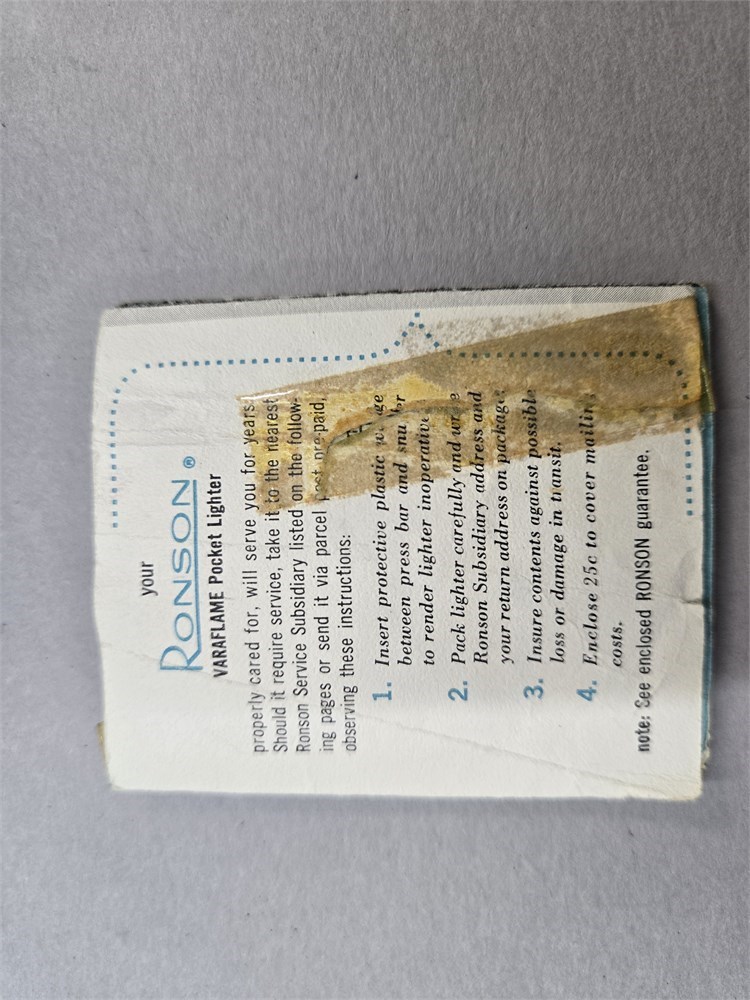 your
RONSON®
VARAFLAME Pocket Lighter
properly cared for, will serve you for years.
Should it require service, take it to the nearest
Ronson Service Subsidiary listed on the follow-
ing pages or send it via parcel post pre-paid,
observing these instructions:
1. Insert protective plastic
between press bar and
to render lighter inoperative
2. Pack lighter carefully and
Ronson Subsidiary address and
your return address on package.
3. Insure contents against possible
loss or damage in transit.
4. Enclose 25c to cover mailing
costs.
note: See enclosed RONSON guarantee.